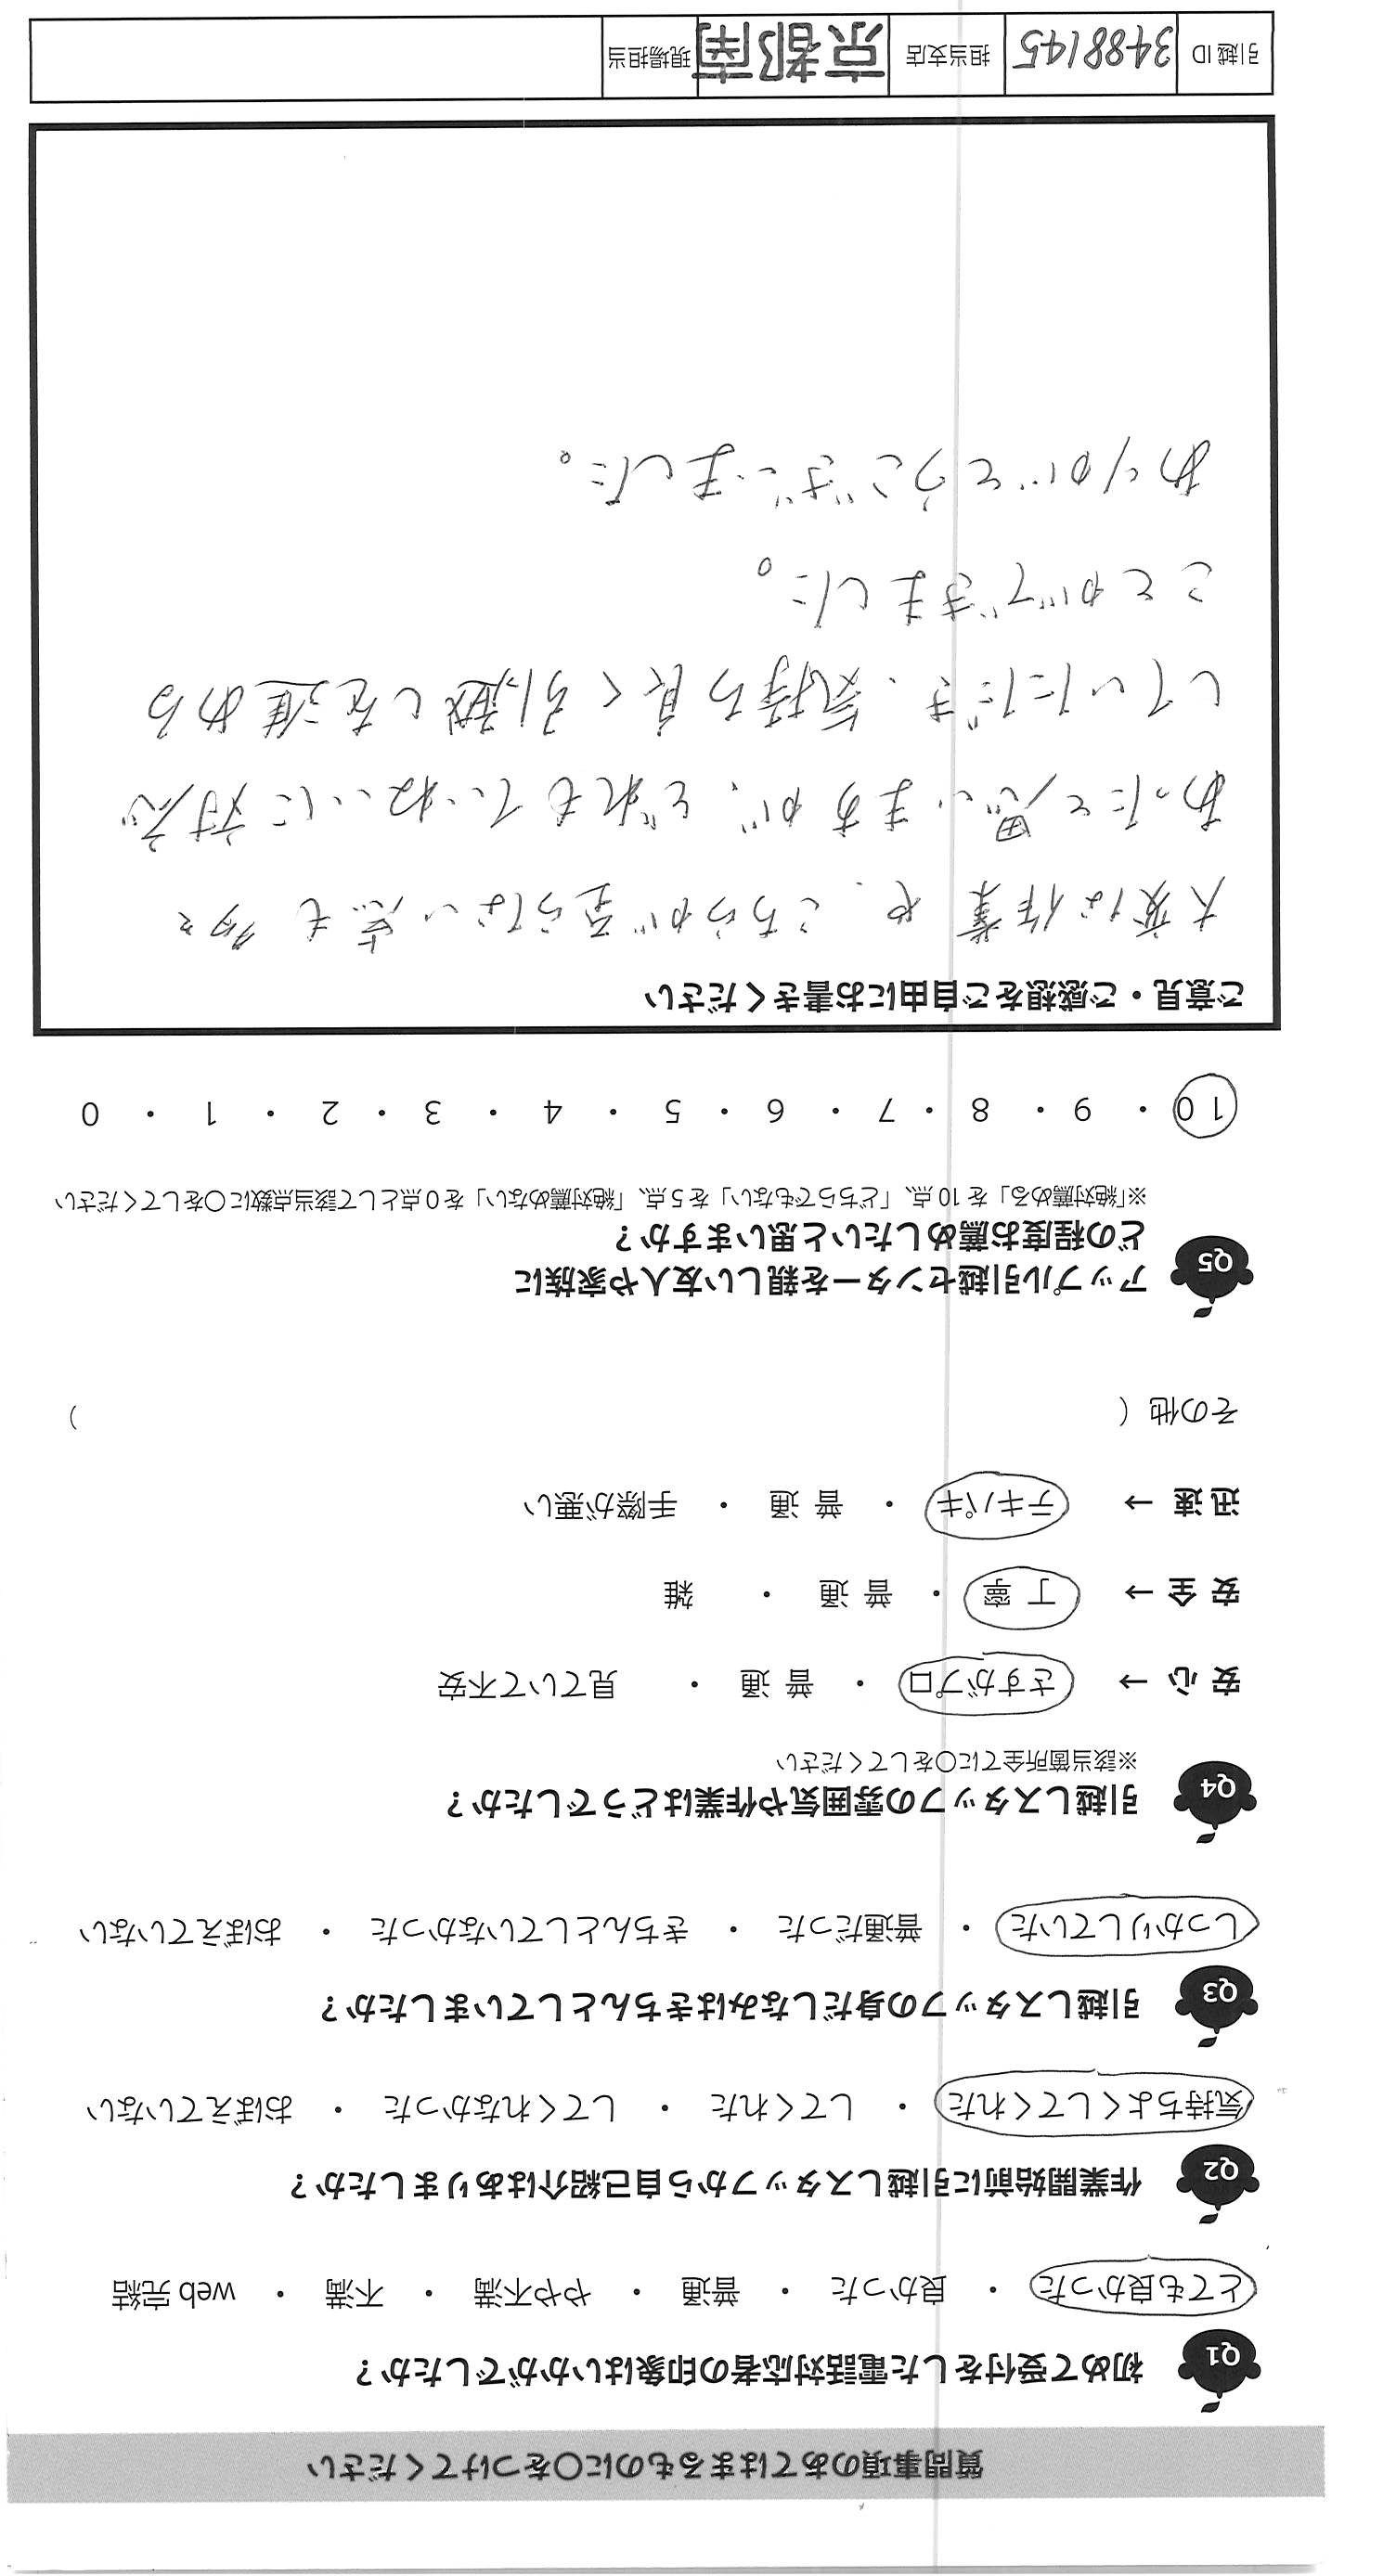 質問事項のあてはまるものに〇をつけてください
Q1 初めて受付をした電話対応者の印象はいかがでしたか？
とても良かった ・ 良かった ・ 普通 ・ やや不満 ・ 不満 ・ web 完結
Q2 作業開始前に引越しスタッフから自己紹介はありましたか？
気持ちよくしてくれた ・ してくれた ・ してくれなかった ・ おぼえていない
Q3 引越しスタッフの身だしなみはきちんとしていましたか？
しっかりしていた ・ 普通だった ・ きちんとしていなかった ・ おぼえていない
Q4 引越しスタッフの雰囲気や作業はどうでしたか？
※該当箇所全てに〇をしてください
安心→ さすがプロ ・ 普通 ・ 見ていて不安
安全→ 丁寧 ・ 普通 ・ 雑
迅速→ テキパキ ・ 普通 ・ 手際が悪い
その他（ ）
Q5 アップル引越センターを親しい友人や家族に
どの程度お薦めしたいと思いますか？
※「絶対薦める」を10点、「どちらでもない」を5点、「絶対薦めない」を0点として該当点数に〇をしてください
10 ・ 9 ・ 8 ・ 7 ・ 6 ・ 5 ・ 4 ・ 3 ・ 2 ・ 1 ・ 0
ご意見・ご感想をご自由にお書きください
大変な作業や、こちらが至らない点も多々
あったと思いますが、どれもていねいに対応
していただき、気持ち良く引越しを進める
ことができました。
ありがとうございました。
引越ID 3488145 担当支店 京都南 現場担当